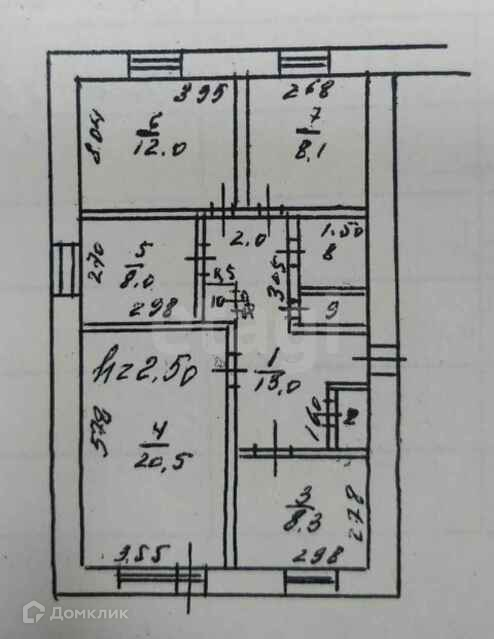 3.95
2.68
3.04
6
12.0
7
8.1
2.0
1.50
8
2.70
5
8.0
2.98
85
10
3.05
9
h=2.50
1
13.0
5.78
4
20.5
1.60
2
3
8.3
2.78
3.55
2.98
etagi
Домклик